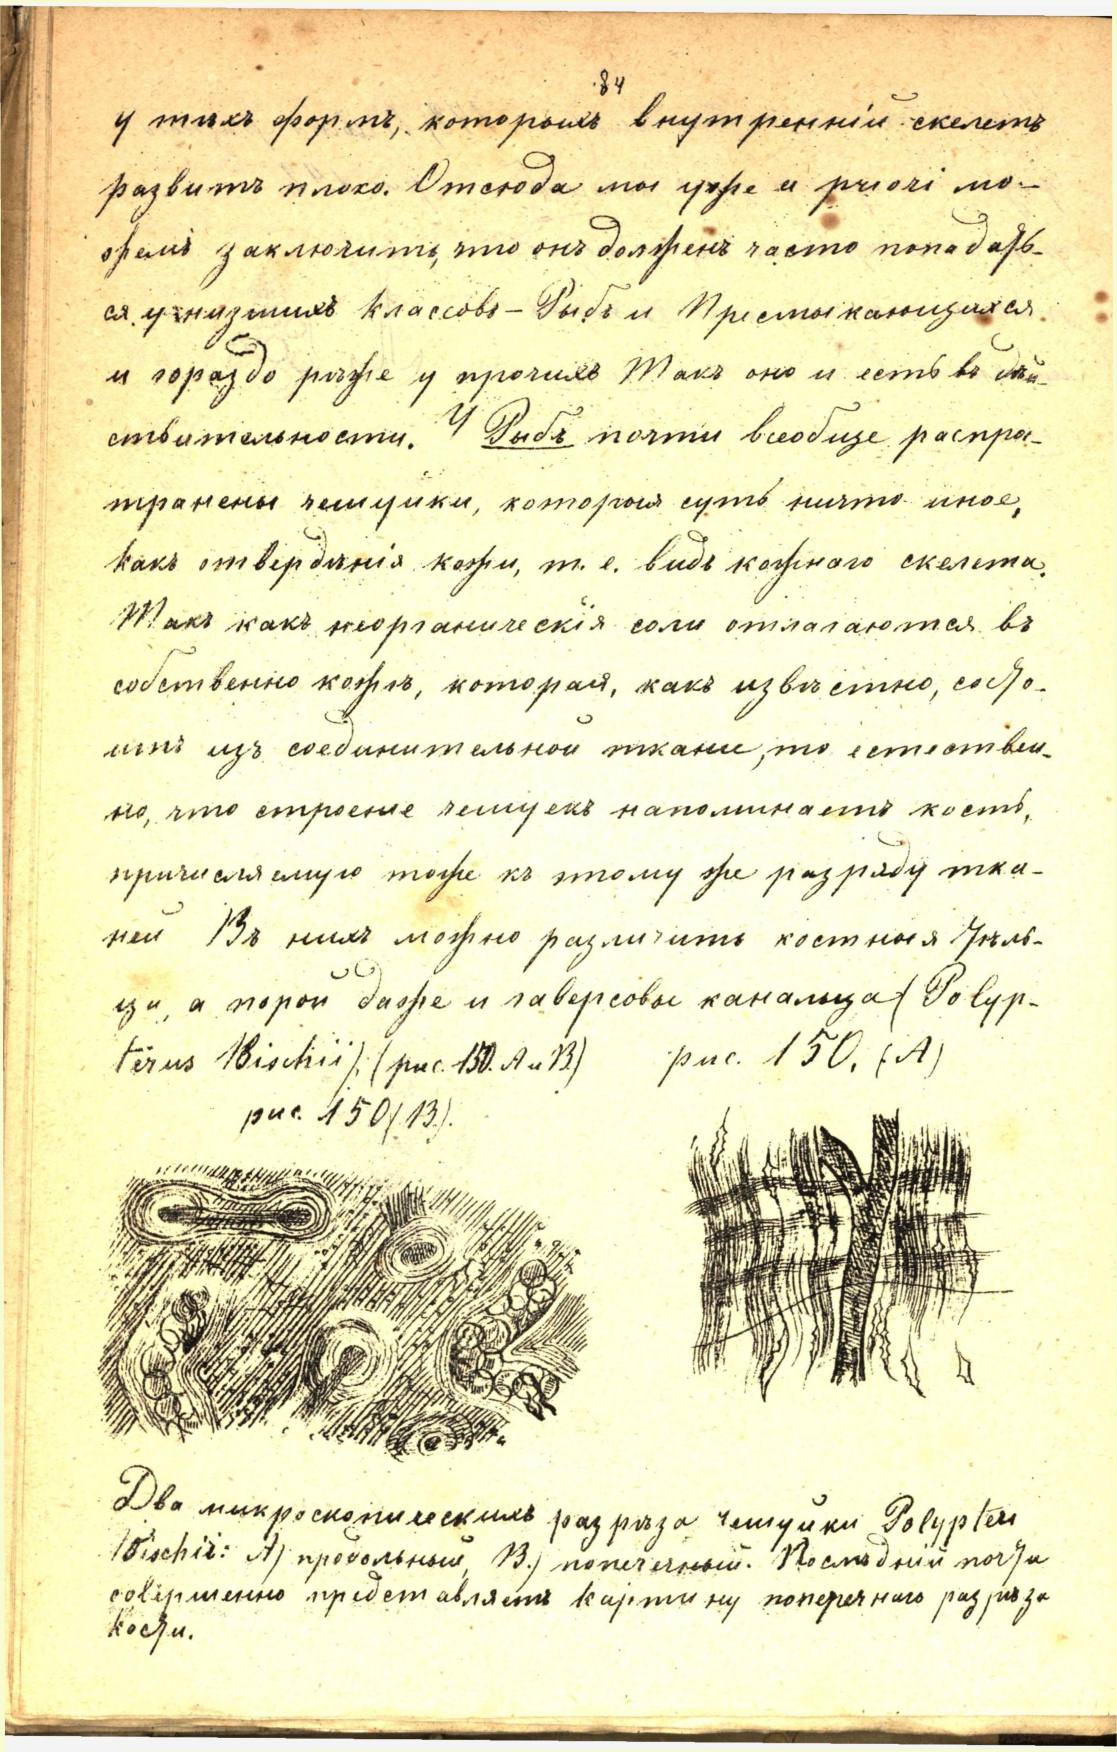 84
у тѣхъ формъ, которыхъ внутренній скелетъ
развитъ плохо. Отсюда мы уже a priori мо-
жемъ заключить, что онъ долженъ часто попадать-
ся у низшихъ классовъ – Рыбъ и Пресмыкающихся
и гораздо рѣже у прочихъ Такъ оно и есть въ дѣй-
ствительности. У Рыбъ почти всеобще распро-
транены чешуйки, которыя суть ничто иное,
какъ отвердѣнія кожи, т. е. видъ кожнаго скелета.
Такъ какъ неорганическія соли отлагаются въ
собственно кожѣ, которая, какъ извѣстно, состо-
итъ изъ соединительной ткани, то естествен-
но, что строеніе чешуекъ напоминаетъ кость,
причисляемую тоже къ этому же разряду тка-
ней Въ нихъ можно различить костныя тѣль-
ца, а порой даже и гаверсовы канальца (Polyp-
terus Bischii). (рис. 150. А и В.) рис. 150. (А)
рис. 150 (В).
Два микроскопическихъ разрѣза чешуйки Polypteri
Bischii: А) продольный, В.) поперечный. Послѣдній почти
совершенно представляетъ картину поперечнаго разрѣза
кости.